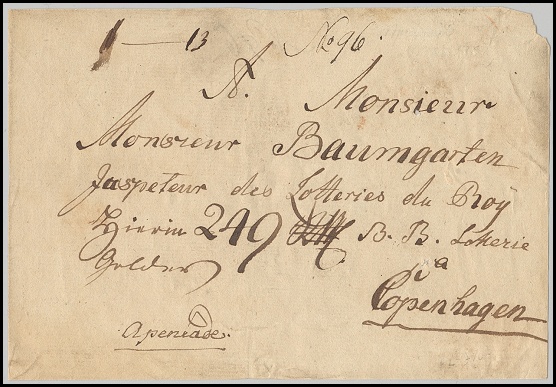 1 — 13 No 96.
A. Monsieur
Monsieur Baumgarten
Inspeteur des Lotteries du Roÿ
Hierin 249 B. B. Lotterie
Gelder
a
Copenhagen
Apenrade.